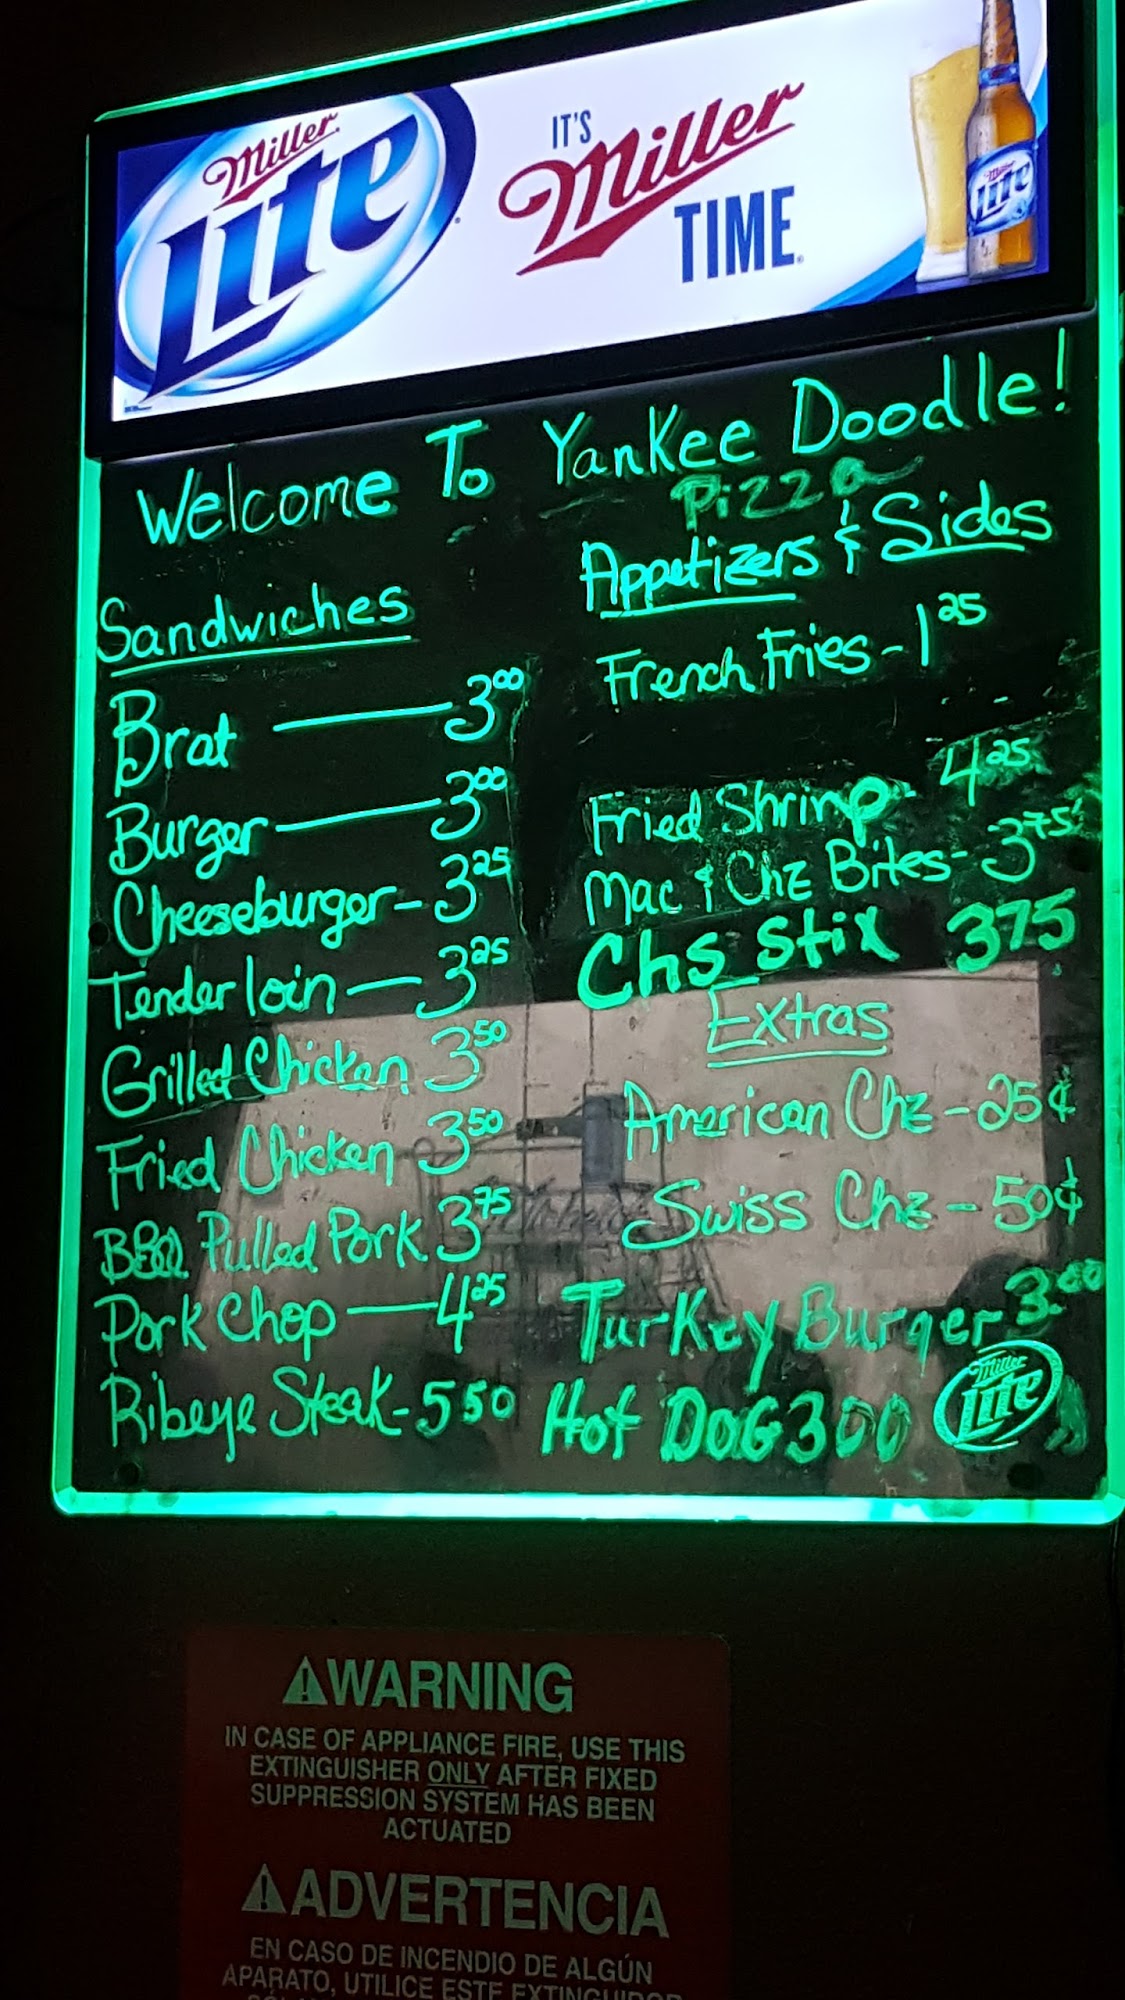 Miller
Lite
IT'S
Miller
TIME.
Miller
Lite
Welcome To Yankee Doodle!
Pizza
Sandwiches
Brat — 3.00
Burger — 3.00
Cheeseburger - 3.25
Tenderloin — 3.25
Grilled Chicken 3.50
Fried Chicken 3.50
BBQ Pulled Pork 3.75
Pork Chop — 4.25
Ribeye Steak - 5.50
Appetizers & Sides
French Fries - 1.25
Fried Shrimp - 4.25
Mac & Chz Bites - 3.75
Chs Stix 375
Extras
American Chz - 25¢
Swiss Chz - 50¢
Turkey Burger 3.00
Hot DoG 300
Miller
Lite
⚠WARNING
IN CASE OF APPLIANCE FIRE, USE THIS
EXTINGUISHER ONLY AFTER FIXED
SUPPRESSION SYSTEM HAS BEEN
ACTUATED
⚠ADVERTENCIA
EN CASO DE INCENDIO DE ALGÚN
APARATO, UTILICE ESTE EXTINGUIDOR